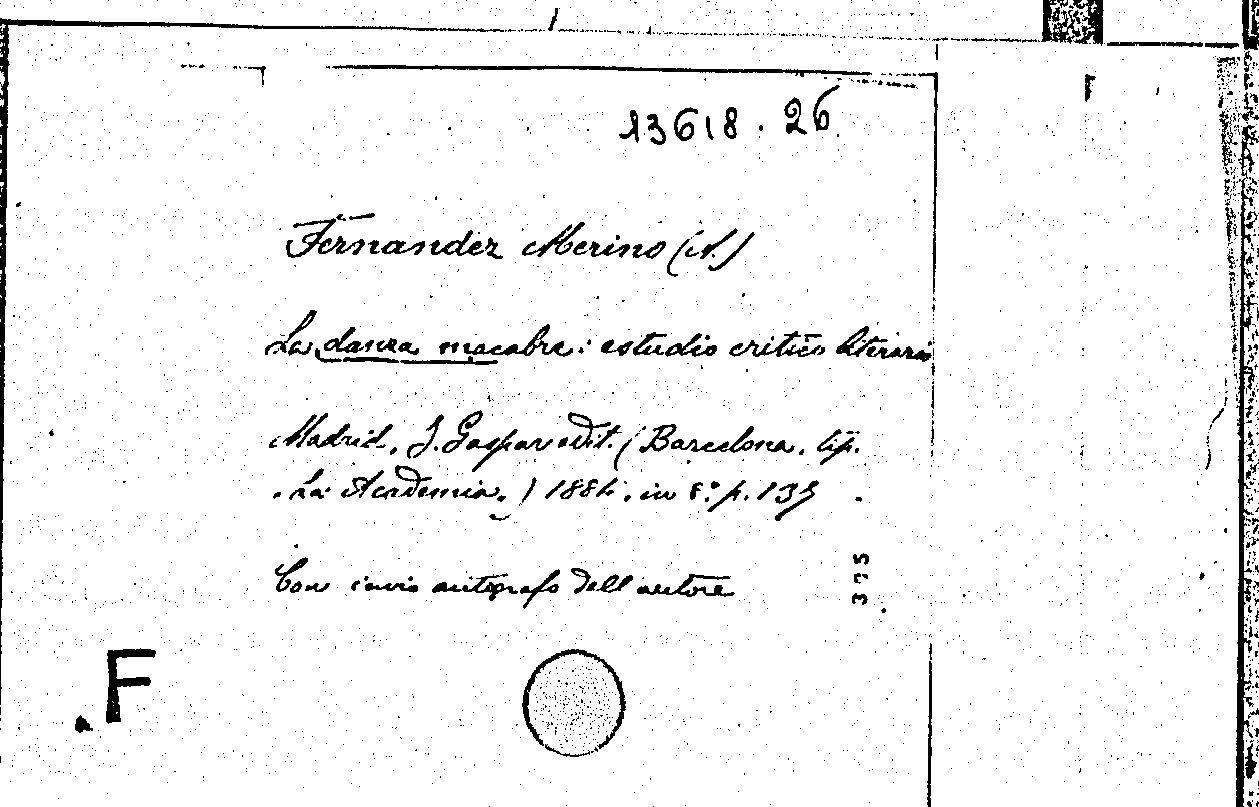 13618.26
Fernandez Merino (A.)
La danza macabre: estudio critico literario
Madrid, J. Gaspar edit. (Barcelona, tip.
La Academia,) 1884, in 8.° p. 135
Con invio autografo dell'autore
375
F